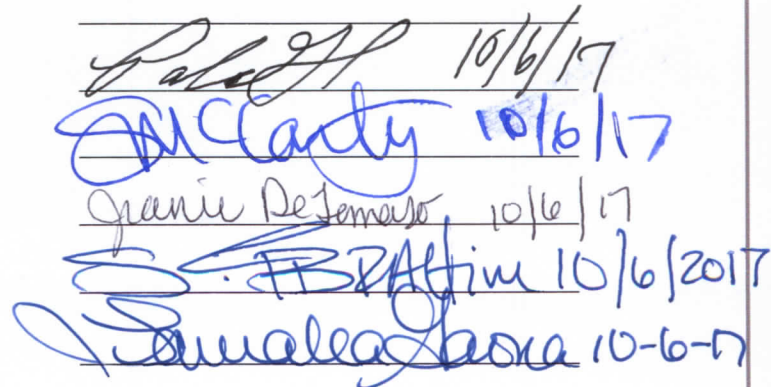 10/6/17
McCarty 10/6/17
Jeanie DeTomaso 10/6/17
S. EBRAHim 10/6/2017
10-6-17